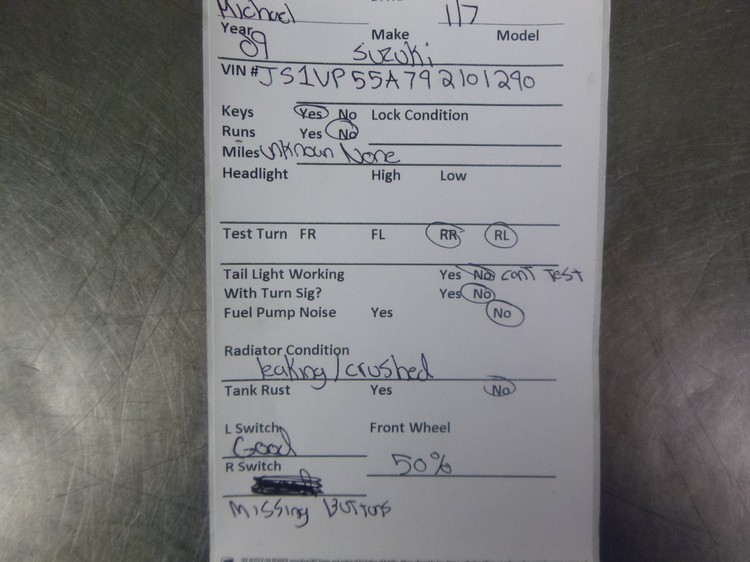 Michael 1/7
Year Make Model
09 Suzuki
VIN # JS1VP55A792101290
Keys Yes No Lock Condition
Runs Yes No
Miles unknown None
Headlight High Low
Test Turn FR FL RR RL
Tail Light Working Yes No cant Test
With Turn Sig? Yes No
Fuel Pump Noise Yes No
Radiator Condition
leaking/crushed
Tank Rust Yes No
L Switch Front Wheel
Good
R Switch 50%
Missing Buttons